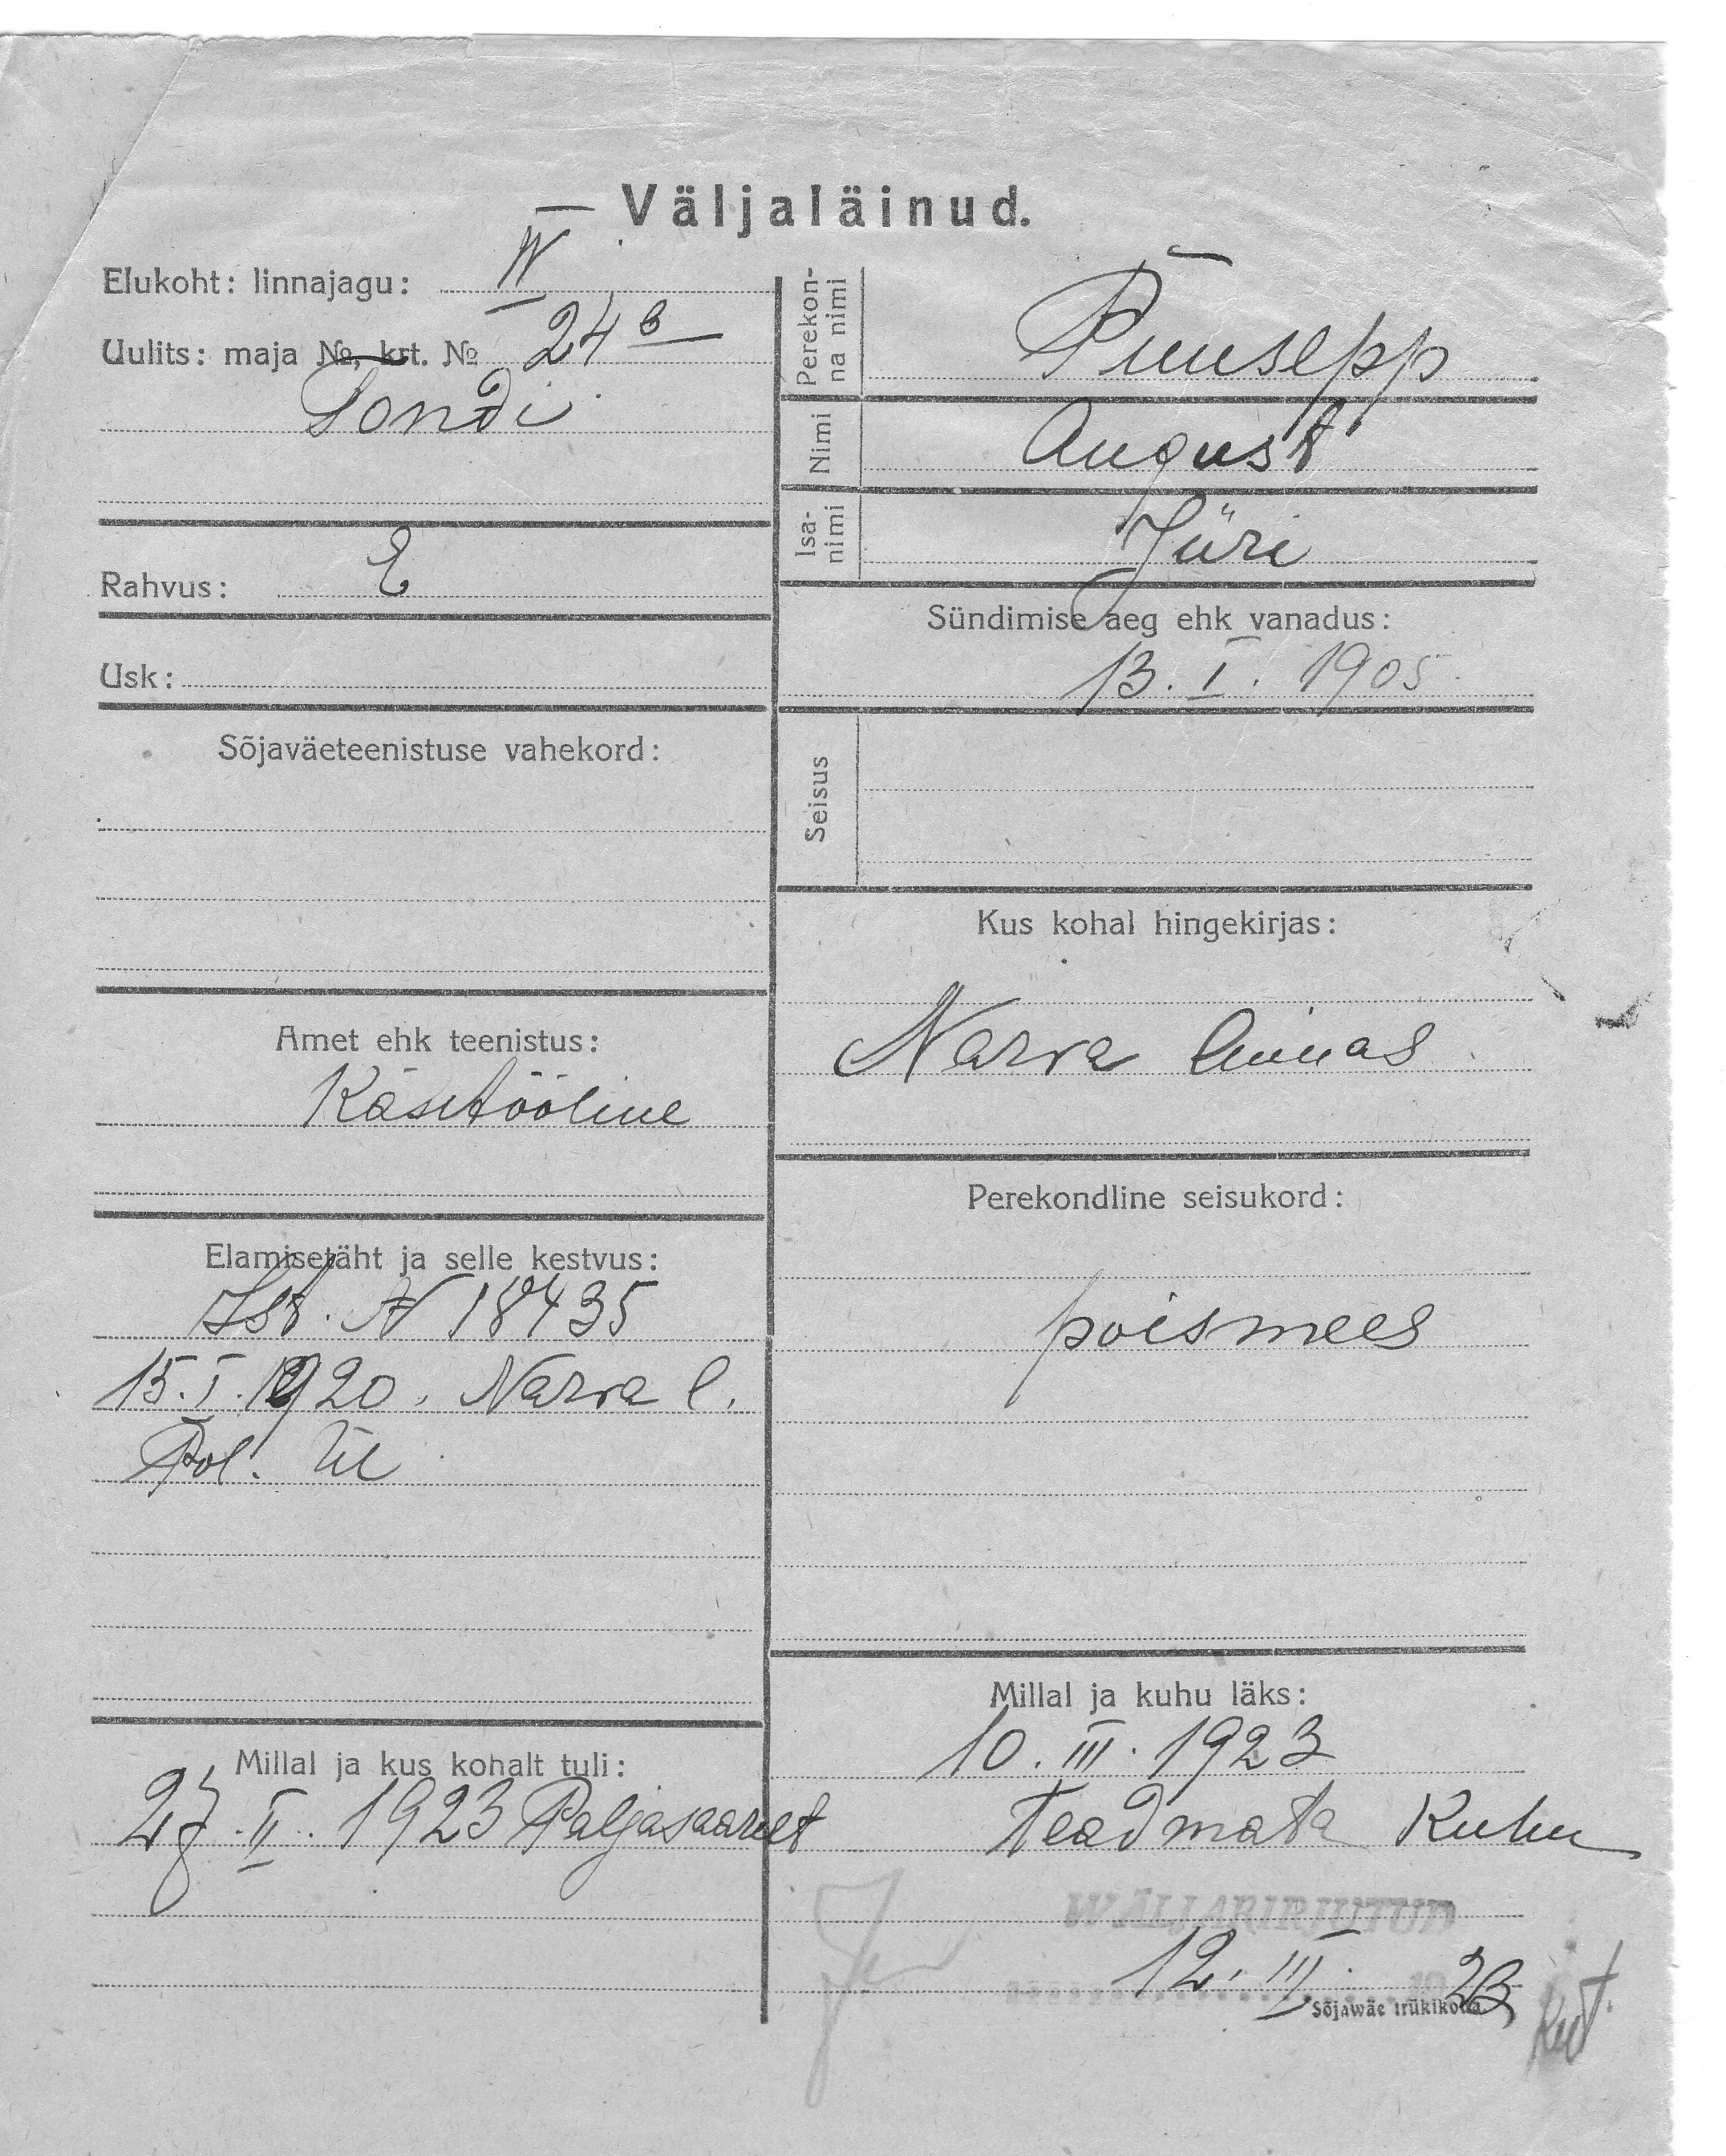 Väljaläinud.
Elukoht: linnajagu: IV
Uulits: maja №, krt. № 24 b
Sondi
Rahvus: E
Usk:
Sõjaväeteenistuse vahekord:
Amet ehk teenistus:
Käsitööline
Elamisetäht ja selle kestvus:
Ist. N 18435
15.I.1920. Narva l.
Pol. Ül
Millal ja kus kohalt tuli:
27.II.1923 Paljasaarelt
Perekonna nimi
Puusepp
Nimi
August
Isanimi
Jüri
Sündimise aeg ehk vanadus:
13.I.1905
Seisus
Kus kohal hingekirjas:
Narva linnas
Perekondline seisukord:
poismees
Millal ja kuhu läks:
10.III.1923
Teadmata Kuhu
WÄLJAKIRJUTUD
12.III. 1923
Sõjawäe trükikoda